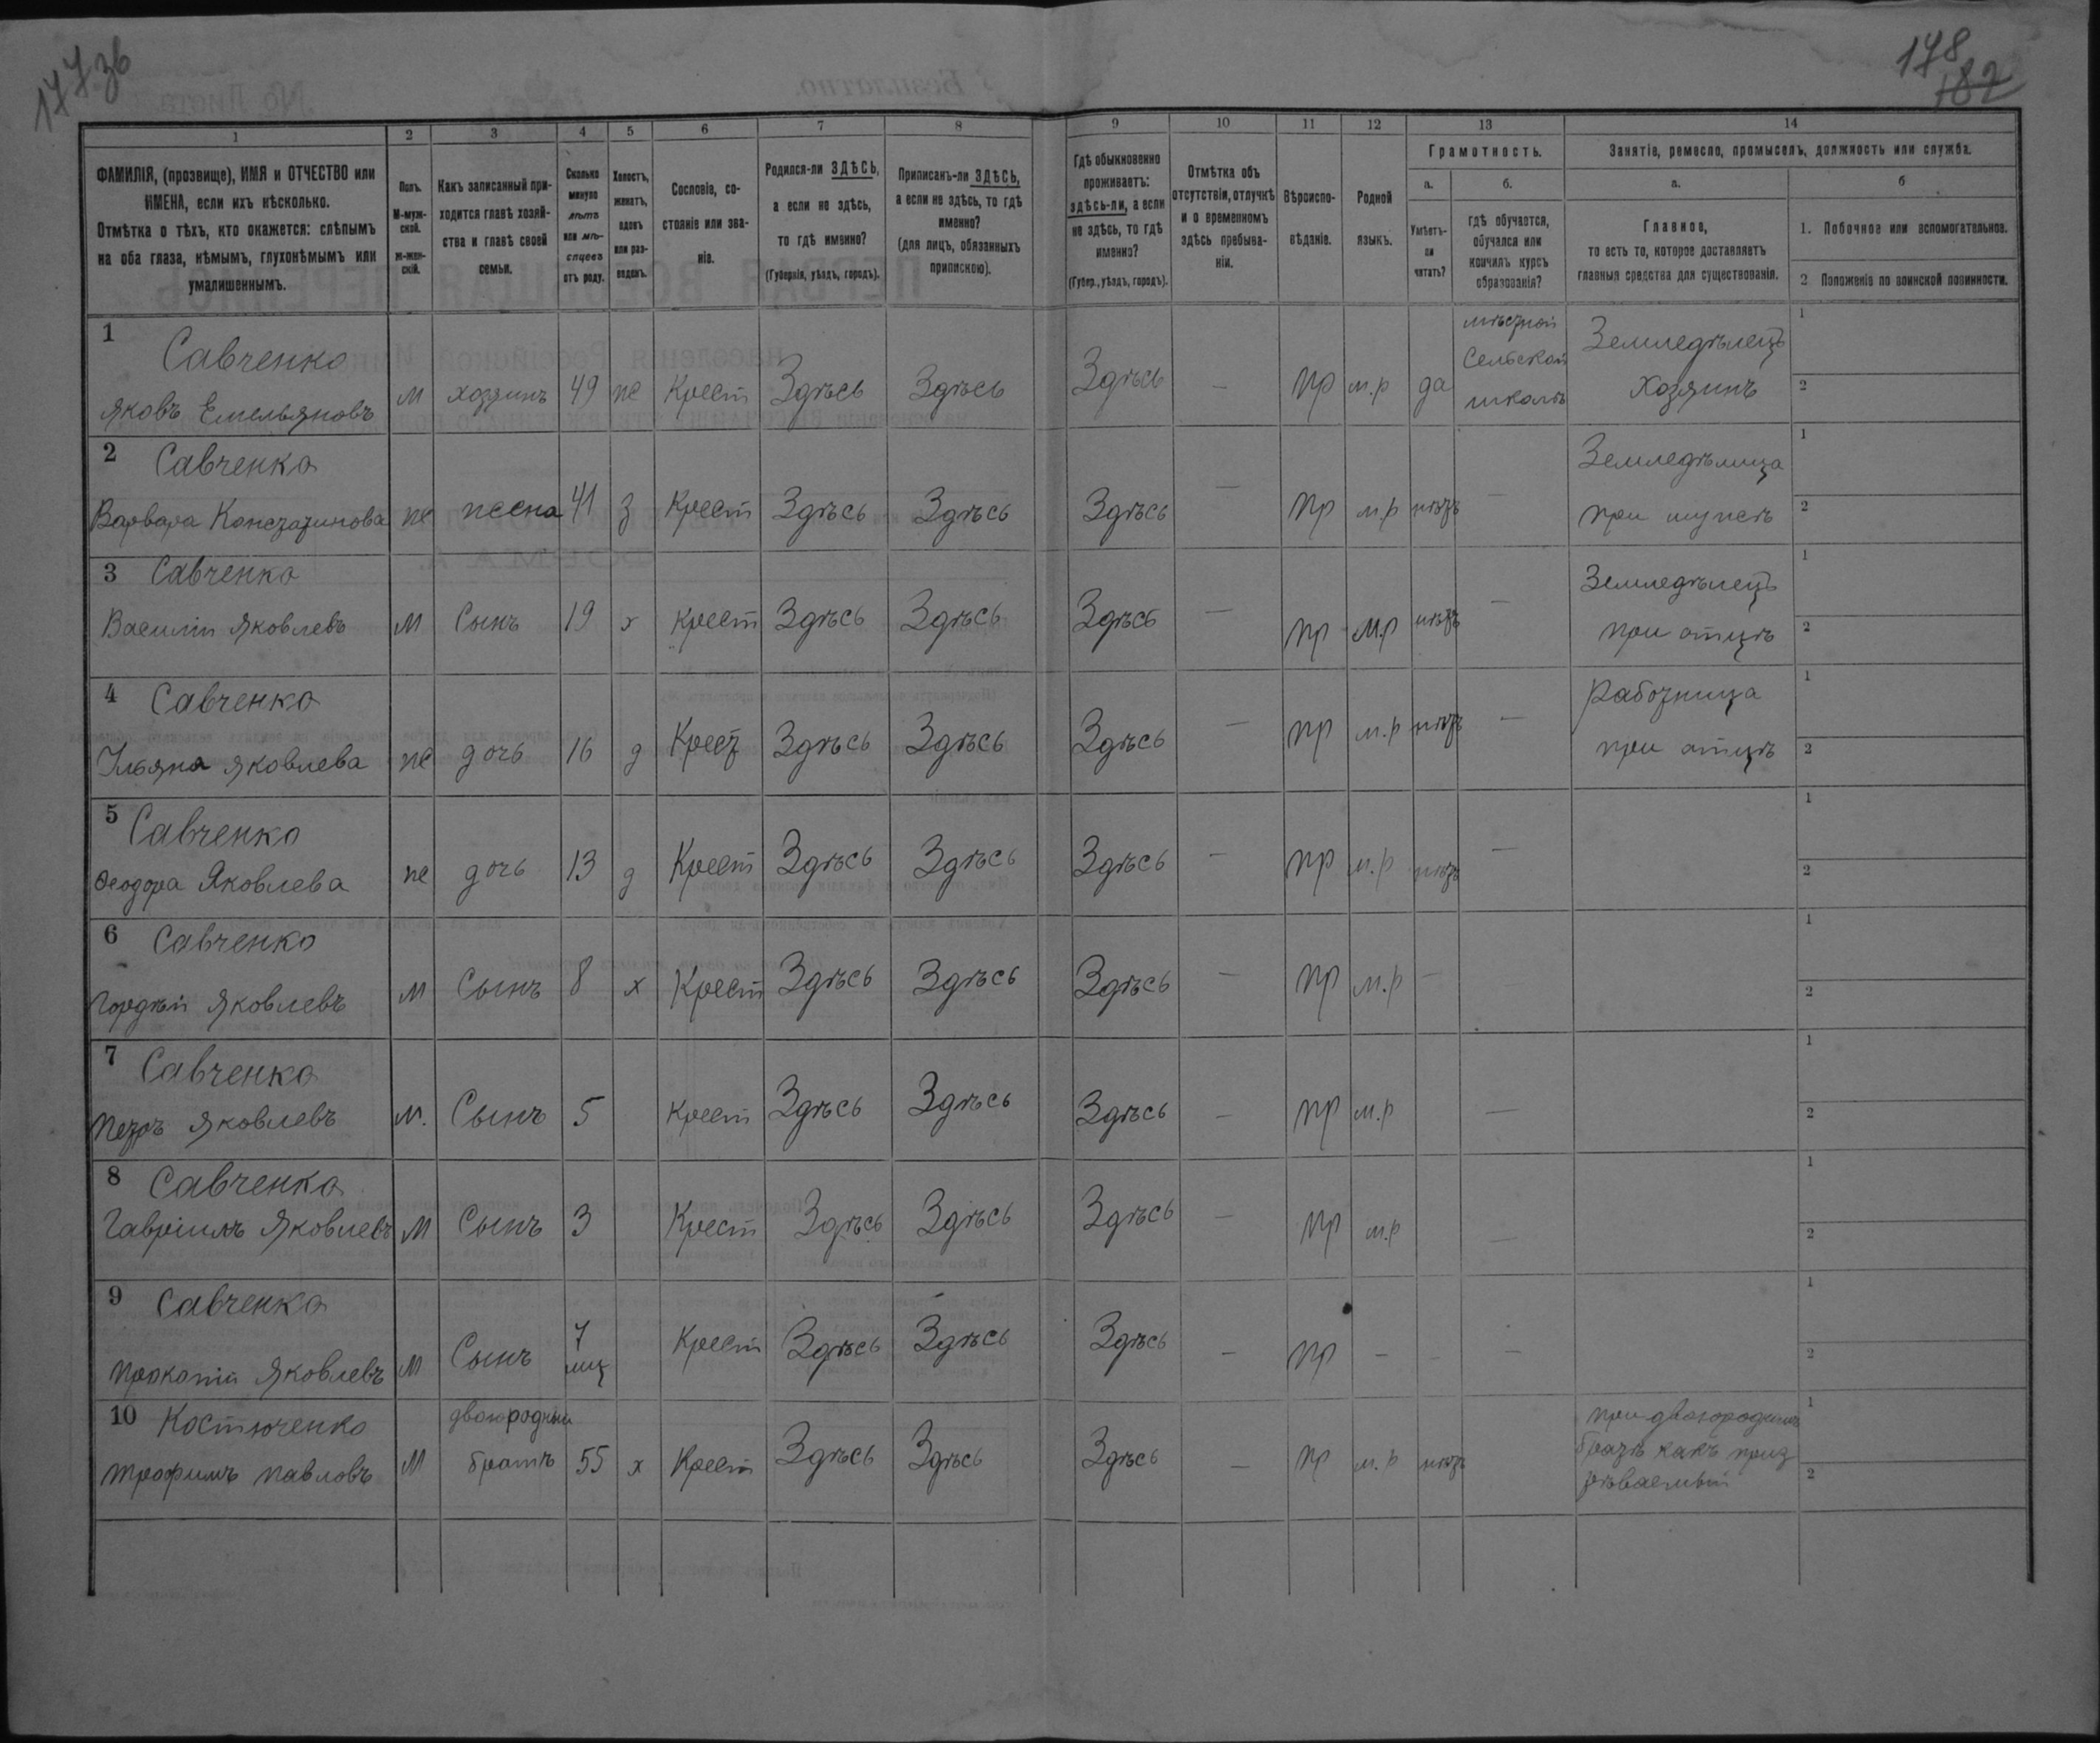 177зв
178
182
1 2 3 4 5 6 7 8 9 10 11 12 13 14
ФАМИЛІЯ, (прозвище), ИМЯ и ОТЧЕСТВО или
ИМЕНА, если ихъ нѣсколько.
Отмѣтка о тѣхъ, кто окажется: слѣпымъ
на оба глаза, нѣмымъ, глухонѣмымъ или
умалишеннымъ.
Полъ.
М-муж-
ской.
ж-жен-
скій.
Какъ записанный при-
ходится главѣ хозяй-
ства и главѣ своей
семьи.
Сколько
минуло
лѣтъ
или мѣ-
сяцевъ
отъ роду.
Холостъ,
женатъ,
вдовъ
или раз-
веденъ.
Сословіе, со-
стояніе или зва-
ніе.
Родился-ли ЗДѢСЬ,
а если не здѣсь,
то гдѣ именно?
(Губернія, уѣздъ, городъ).
Приписанъ-ли ЗДѢСЬ,
а если не здѣсь, то гдѣ
именно?
(для лицъ, обязанныхъ
припискою).
Гдѣ обыкновенно
проживаетъ:
здѣсь-ли, а если
не здѣсь, то гдѣ
именно?
(Губер., уѣздъ, городъ).
Отмѣтка объ
отсутствіи, отлучкѣ
и о временномъ
здѣсь пребыва-
ніи.
Вѣроиспо-
вѣданіе.
Родной
языкъ.
Грамотность.
а.
Умѣетъ-
ли
читать?
б.
гдѣ обучается,
обучался или
кончилъ курсъ
образованія?
Занятіе, ремесло, промыселъ, должность или служба.
а.
Главное,
то есть то, которое доставляетъ
главныя средства для существованія.
б
1. Побочное или вспомогательное.
2 Положеніе по воинской повинности.
1 Савченко
Яковъ Емельяновъ
м хозяинъ 49 же Крест Здѣсь Здѣсь Здѣсь — пр м.р да
мѣстной
Сельской
школѣ
Земледѣлецъ
Хозяинъ
1
2
2 Савченко
Варвара Констатинова
же жена 41 з Крест Здѣсь Здѣсь Здѣсь — пр м.р нѣтъ —
Земледѣлица
при мужѣ
1
2
3 Савченко
Василій Яковлевъ
м Сынъ 19 х Крест Здѣсь Здѣсь Здѣсь — пр м.р нѣтъ —
Земледѣлецъ
при отцѣ
1
2
4 Савченко
Ульяна Яковлева
же дочь 16 д Крест Здѣсь Здѣсь Здѣсь — пр м.р нѣтъ —
Работница
при отцѣ
1
2
5 Савченко
Ѳеодора Яковлева
же дочь 13 д Крест Здѣсь Здѣсь Здѣсь — пр м.р нѣтъ —
1
2
6 Савченко
Гордѣй Яковлевъ
м Сынъ 8 х Крест Здѣсь Здѣсь Здѣсь — пр м.р —
1
2
7 Савченко
Петръ Яковлевъ
м. Сынъ 5 Крест Здѣсь Здѣсь Здѣсь — пр м.р —
1
2
8 Савченко
Гавріилъ Яковлевъ
м Сынъ 3 Крест Здѣсь Здѣсь Здѣсь — пр м.р —
1
2
9 Савченко
Прокопій Яковлевъ
м Сынъ 7
мц
Крест Здѣсь Здѣсь Здѣсь — пр — — —
1
2
10 Костюченко
Трофимъ Павловъ
м двоюродный
братъ 55 х Крест Здѣсь Здѣсь Здѣсь — пр м.р нѣтъ
при двоюродномъ
братѣ какъ приз
рѣваемый
1
2